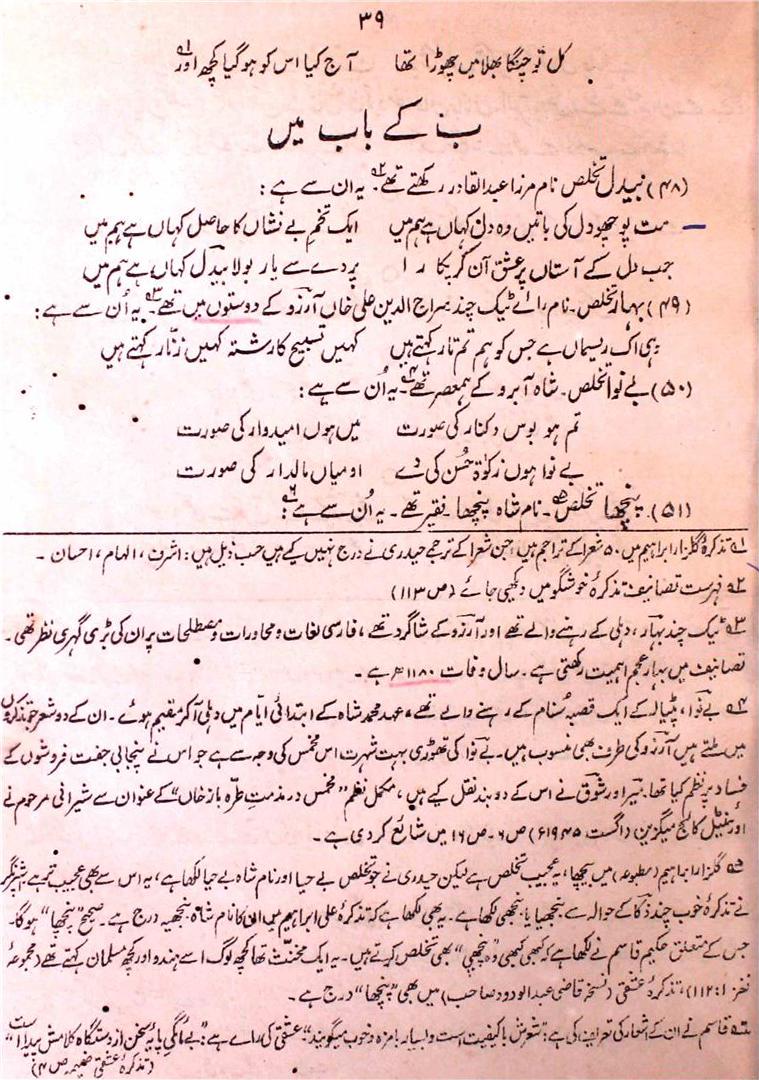 ۳۹
کل تو چنگا بھلا میں چھوڑا تھا آج کیا اس کو ہو گیا کچھ اور ؂۱
ب؁ کے باب میں
(۴۸) بیدل تخلص نام مرزا عبدالقادر رکھتے تھے ؂۲ یہ ان سے ہے :
مت پوچھو دل کی باتیں وہ دل کہاں ہے ہم میں ایک تخم بے نشاں کا حاصل کہاں ہے ہم میں
جب دل کے آستاں پر عشق آن کر پکا ر ا پردے سے یار بولا بیدل کہاں ہے ہم میں
(۴۹) بہار تخلص۔ نام، رائے ٹیک چند سراج الدین علی خاں آرزو کے دوستوں میں تھے ؂۳ یہ اُن سے ہے :
وہی اک ریسماں ہے جس کو ہم تم تار کہتے ہیں کہیں تسبیح کا رشتہ کہیں زنّار کہتے ہیں
(۵۰) بے نوا تخلص۔ شاہ آبرو کے ہمعصر تھے ؂۴ یہ اُن سے ہے :
تم ہو بوس و کنار کی صورت میں ہوں امیدوار کی صورت
بے نوا ہوں زکوٰۃ حُسن کی دے او میاں مالدار کی صورت
(۵۱)۔ پنچھا تخلص ؂۵۔ نام شاہ پنچھا فقیر تھے۔ یہ اُن سے ہے ؂۶ :
؂۱ تذکرۂ گلزار ابراہیم میں ۵۰ شعرا کے تراجم ہیں، جن شعرا کے ترجمے حیدری نے درج نہیں کیے ہیں حسب ذیل ہیں : اشرف ، الہام ، احسان ۔
؂۲ فہرست تصانیف تذکرۂ خوشگو میں دیکھی جائے (ص ۱۱۳)
؂۳ ٹیک چند بہار، دہلی کے رہنے والے تھے اور آرزو کے شاگرد تھے ، فارسی لغات و محاورات و مصطلحات پر ان کی بڑی گہری نظر تھی۔
تصانیف میں بہار عجم اہمیت رکھتی ہے۔ سال وفات ۱۱۸۰ھ ہے ۔
؂۴ بے نوا ، پٹیالہ کے ایک قصبہ سُنام کے رہنے والے تھے ، عہد محمد شاہ کے ابتدائی ایّام میں دہلی آکر مقیم ہوئے ۔ ان کے دو شعر جو تذکروں
میں ملتے ہیں آرزو کی طرف بھی منسوب ہیں۔ بے نوا کی تھوڑی بہت شہرت اس مخمس کی وجہ سے ہے جو اس نے پنجابی جفت فروشوں کے
فساد پر نظم کیا تھا۔ میر اور شوق نے اس کے دو بند نقل کیے ہیں ، مکمل نظم "مخمس در مذمت طرّہ باز خاں" کے عنوان سے شیرانی مرحوم نے
اورنٹیل کالج میگزین (اگست ۱۹۴۵ء) ص ۶۔ ص ۱۶ میں شائع کر دی ہے ۔
؂۵ گلزار ابراہیم (مطبوعہ) میں پیچھا ، یہ عجیب تخلص ہے لیکن حیدری نے جو تخلص بے حیا اور نام شاہ بے حیا لکھا ہے ، یہ اس سے بھی عجیب تر ہے اشپرنگر
نے تذکرۂ خوب چند ذکا کے حوالہ سے پنجھیا یا پنجھی لکھا ہے ۔ یہ بھی لکھا ہے کہ تذکرۂ علی ابراہیم میں ان کا نام شاہ پنجھیہ درج ہے۔ صحیح "پنچھا" ہوگا۔
جس کے متعلق حکیم قاسم نے لکھا ہے ، کبھی کبھی وہ "پنچھی" بھی تخلص کرتے ہیں۔ یہ ایک مخنّث تھا کچھ لوگ اسے ہندو اور کچھ مسلمان کہتے تھے (مجموعۂ
نغز ۱ : ۱۱۲)، تذکرۂ عشقی (نسخہ قاضی عبدالودود صاحب) میں بھی "پنچھا" درج ہے ۔
؂۶ قاسم نے ان کے اشعار کی تعریف کی ہے : "شعرش با کیفیت است و بسیار بامزہ و خوب میگوید" عشقی کی رائے ہے : "بے مانگی پایۂ سخن از دستگاہ کلامش پیدا است"
(تذکرۂ عشقی ضمیمہ ص ۴)